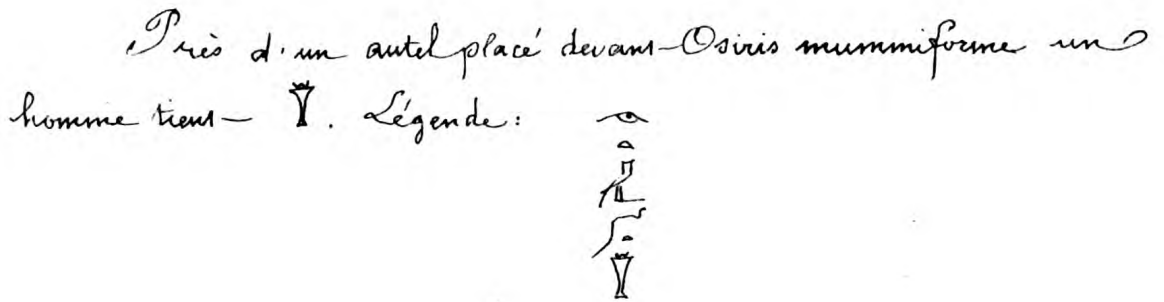 Près d'un autel placé devant Osiris mummiforme un
homme tient 𓊸. Légende :
𓁹
𓏏